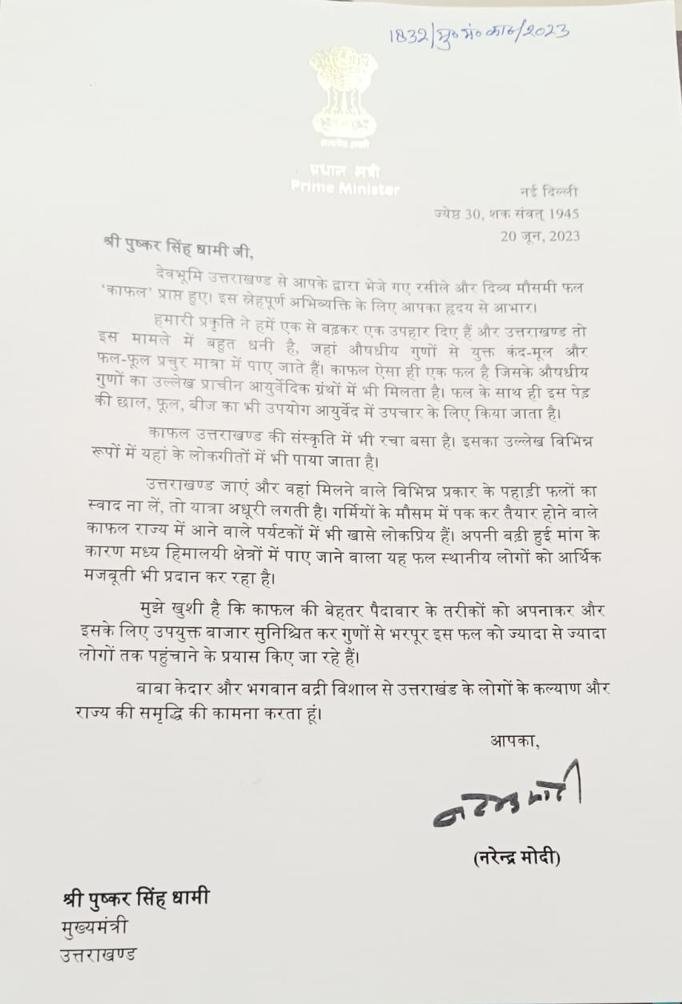 1832/मु०मं०का०/2023
सत्यमेव जयते
प्रधान मंत्री
Prime Minister
नई दिल्ली
ज्येष्ठ 30, शक संवत् 1945
20 जून, 2023
श्री पुष्कर सिंह धामी जी,
देवभूमि उत्तराखण्ड से आपके द्वारा भेजे गए रसीले और दिव्य मौसमी फल
'काफल' प्राप्त हुए। इस स्नेहपूर्ण अभिव्यक्ति के लिए आपका हृदय से आभार।
हमारी प्रकृति ने हमें एक से बढ़कर एक उपहार दिए हैं और उत्तराखण्ड तो
इस मामले में बहुत धनी है, जहां औषधीय गुणों से युक्त कंद-मूल और
फल-फूल प्रचुर मात्रा में पाए जाते हैं। काफल ऐसा ही एक फल है जिसके औषधीय
गुणों का उल्लेख प्राचीन आयुर्वेदिक ग्रंथों में भी मिलता है। फल के साथ ही इस पेड़
की छाल, फूल, बीज का भी उपयोग आयुर्वेद में उपचार के लिए किया जाता है।
काफल उत्तराखण्ड की संस्कृति में भी रचा बसा है। इसका उल्लेख विभिन्न
रूपों में यहां के लोकगीतों में भी पाया जाता है।
उत्तराखण्ड जाएं और वहां मिलने वाले विभिन्न प्रकार के पहाड़ी फलों का
स्वाद ना लें, तो यात्रा अधूरी लगती है। गर्मियों के मौसम में पक कर तैयार होने वाले
काफल राज्य में आने वाले पर्यटकों में भी खासे लोकप्रिय हैं। अपनी बढ़ी हुई मांग के
कारण मध्य हिमालयी क्षेत्रों में पाए जाने वाला यह फल स्थानीय लोगों को आर्थिक
मजबूती भी प्रदान कर रहा है।
मुझे खुशी है कि काफल की बेहतर पैदावार के तरीकों को अपनाकर और
इसके लिए उपयुक्त बाजार सुनिश्चित कर गुणों से भरपूर इस फल को ज्यादा से ज्यादा
लोगों तक पहुंचाने के प्रयास किए जा रहे हैं।
बाबा केदार और भगवान बद्री विशाल से उत्तराखंड के लोगों के कल्याण और
राज्य की समृद्धि की कामना करता हूं।
आपका,
नरेन्द्र मोदी
(नरेन्द्र मोदी)
श्री पुष्कर सिंह धामी
मुख्यमंत्री
उत्तराखण्ड